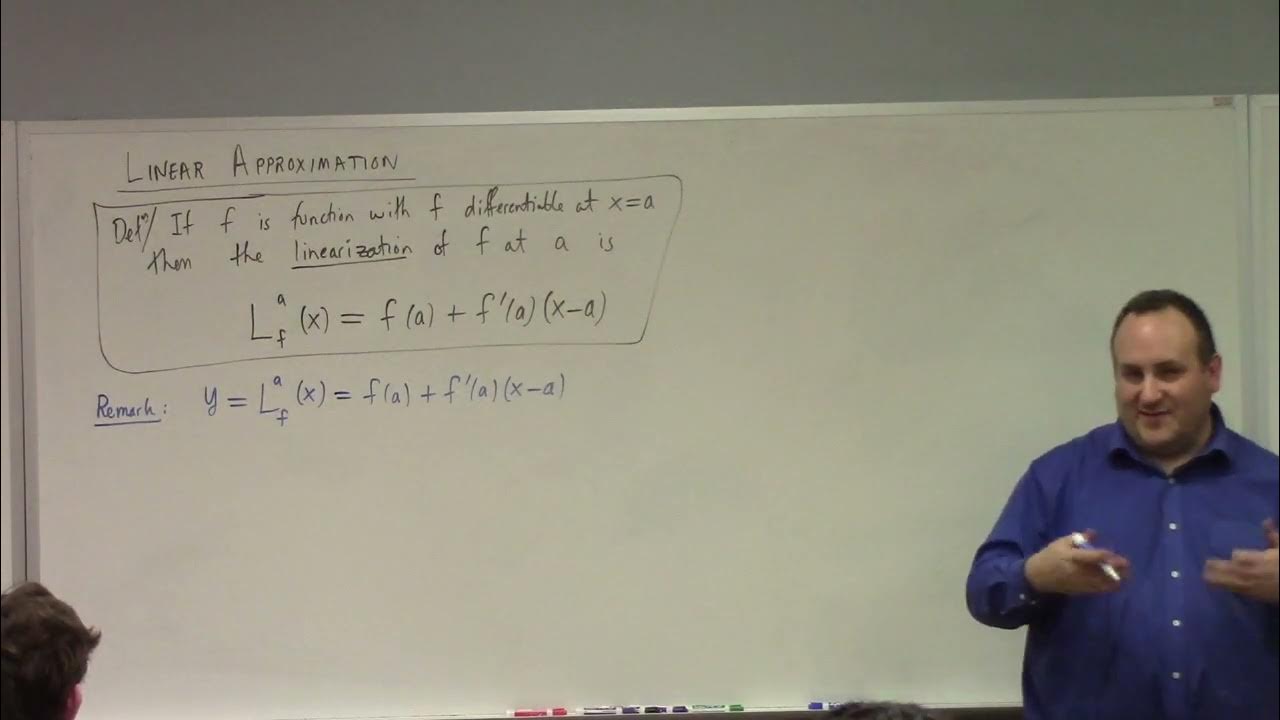 LINEAR APPROXIMATION
Defⁿ/ If f is function with f differentiable at x=a
then the linearization of f at a is
L_f^a (x) = f(a) + f'(a)(x-a)
Remark: y = L_f^a (x) = f(a) + f'(a)(x-a)